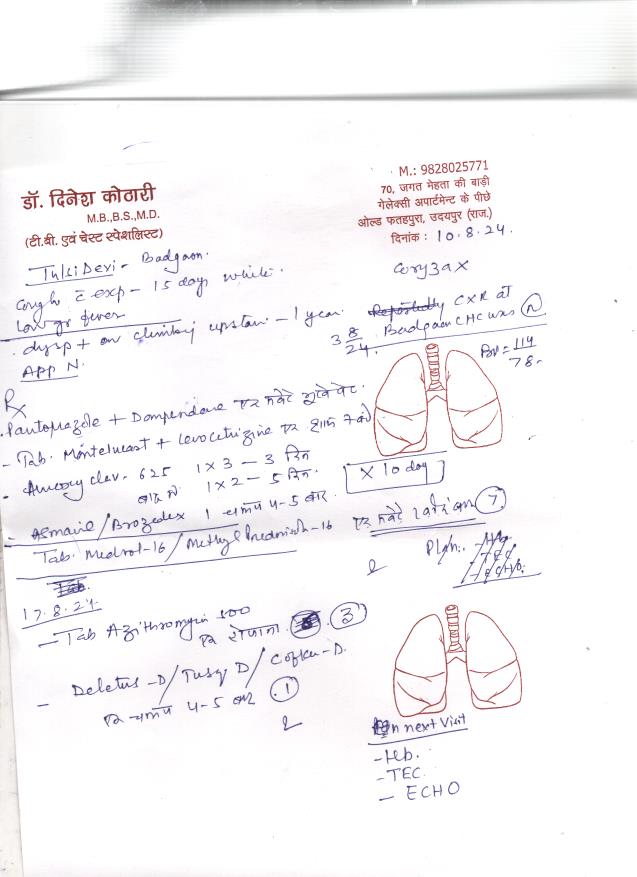 डॉ. दिनेश कोठारी
M.B.,B.S.,M.D.
(टी.बी. एवं चेस्ट स्पेशलिस्ट)
M.: 9828025771
70, जगत मेहता की बाड़ी
गेलेक्सी अपार्टमेन्ट के पीछे
ओल्ड फतहपुरा, उदयपुर (राज.)
दिनांक : 10.8.24.
Tulsi Devi - Badgaon.
Cough c exp - 15 days white.
Low gr fever
dysp + on climbing upstairs - 1 year.
App N.
Coryza x
CXR at
3 8/24. Badgaon CHC was N
BP = 114
78
Rx
- Pantoprazole + Domperidone एक सवेरे भूखे पेट.
- Tab. Montelucast + Levocetrizine एक शाम 7 बजे
- Amoxyclav - 625 1 x 3 - 3 दिन
बाद में 1 x 2 - 5 दिन.
x 10 day
- Asmaril / Brozedex 1 चम्मच 4-5 बार
Tab. Medrol-16 / Methyl Prednisolo-16 एक सवेरे 7
Plan: - Hb
- TEC
- ECHO.
17.8.24
- Tab Azithromycin 500
एक रोजाना 3
- Deletus-D / Tusq D / Cofker-D.
एक चम्मच 4-5 बार 1
On next visit
- Hb.
- TEC
- ECHO